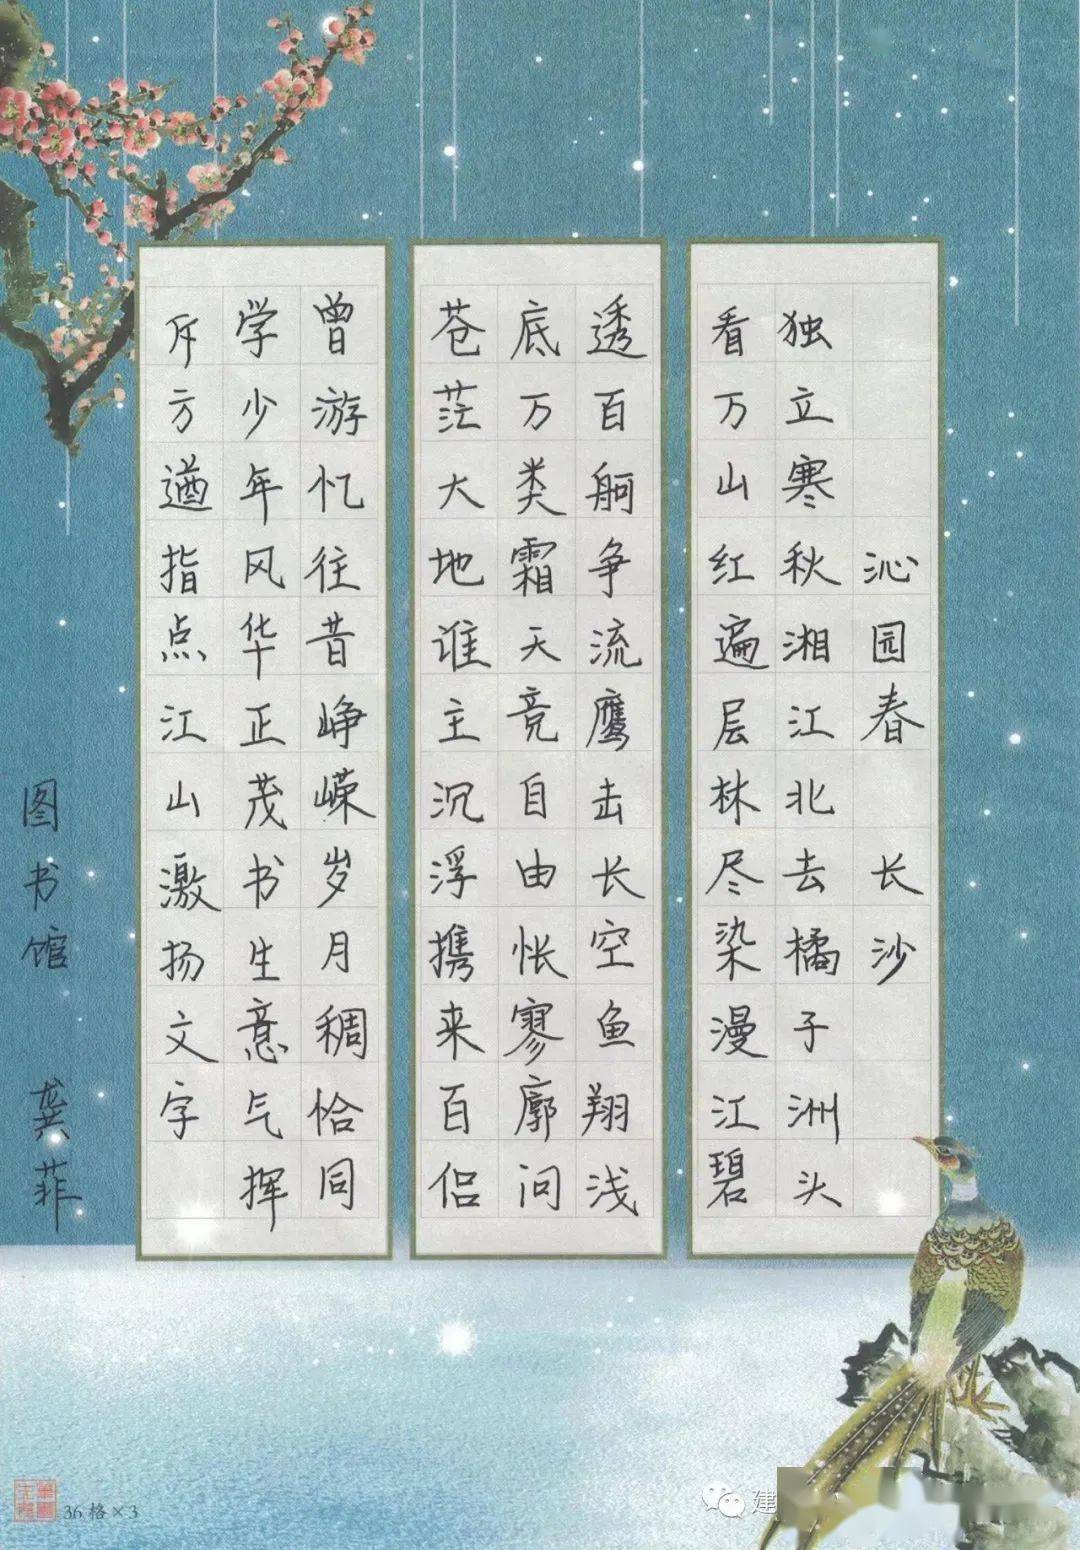 沁园春 长沙
独立寒秋湘江北去橘子洲头
看万山红遍层林尽染漫江碧
透百舸争流鹰击长空鱼翔浅
底万类霜天竞自由怅寥廓问
苍茫大地谁主沉浮携来百侣
曾游忆往昔峥嵘岁月稠恰同
学少年风华正茂书生意气挥
斥方遒指点江山激扬文字
图书馆 龚菲
36格×3
建